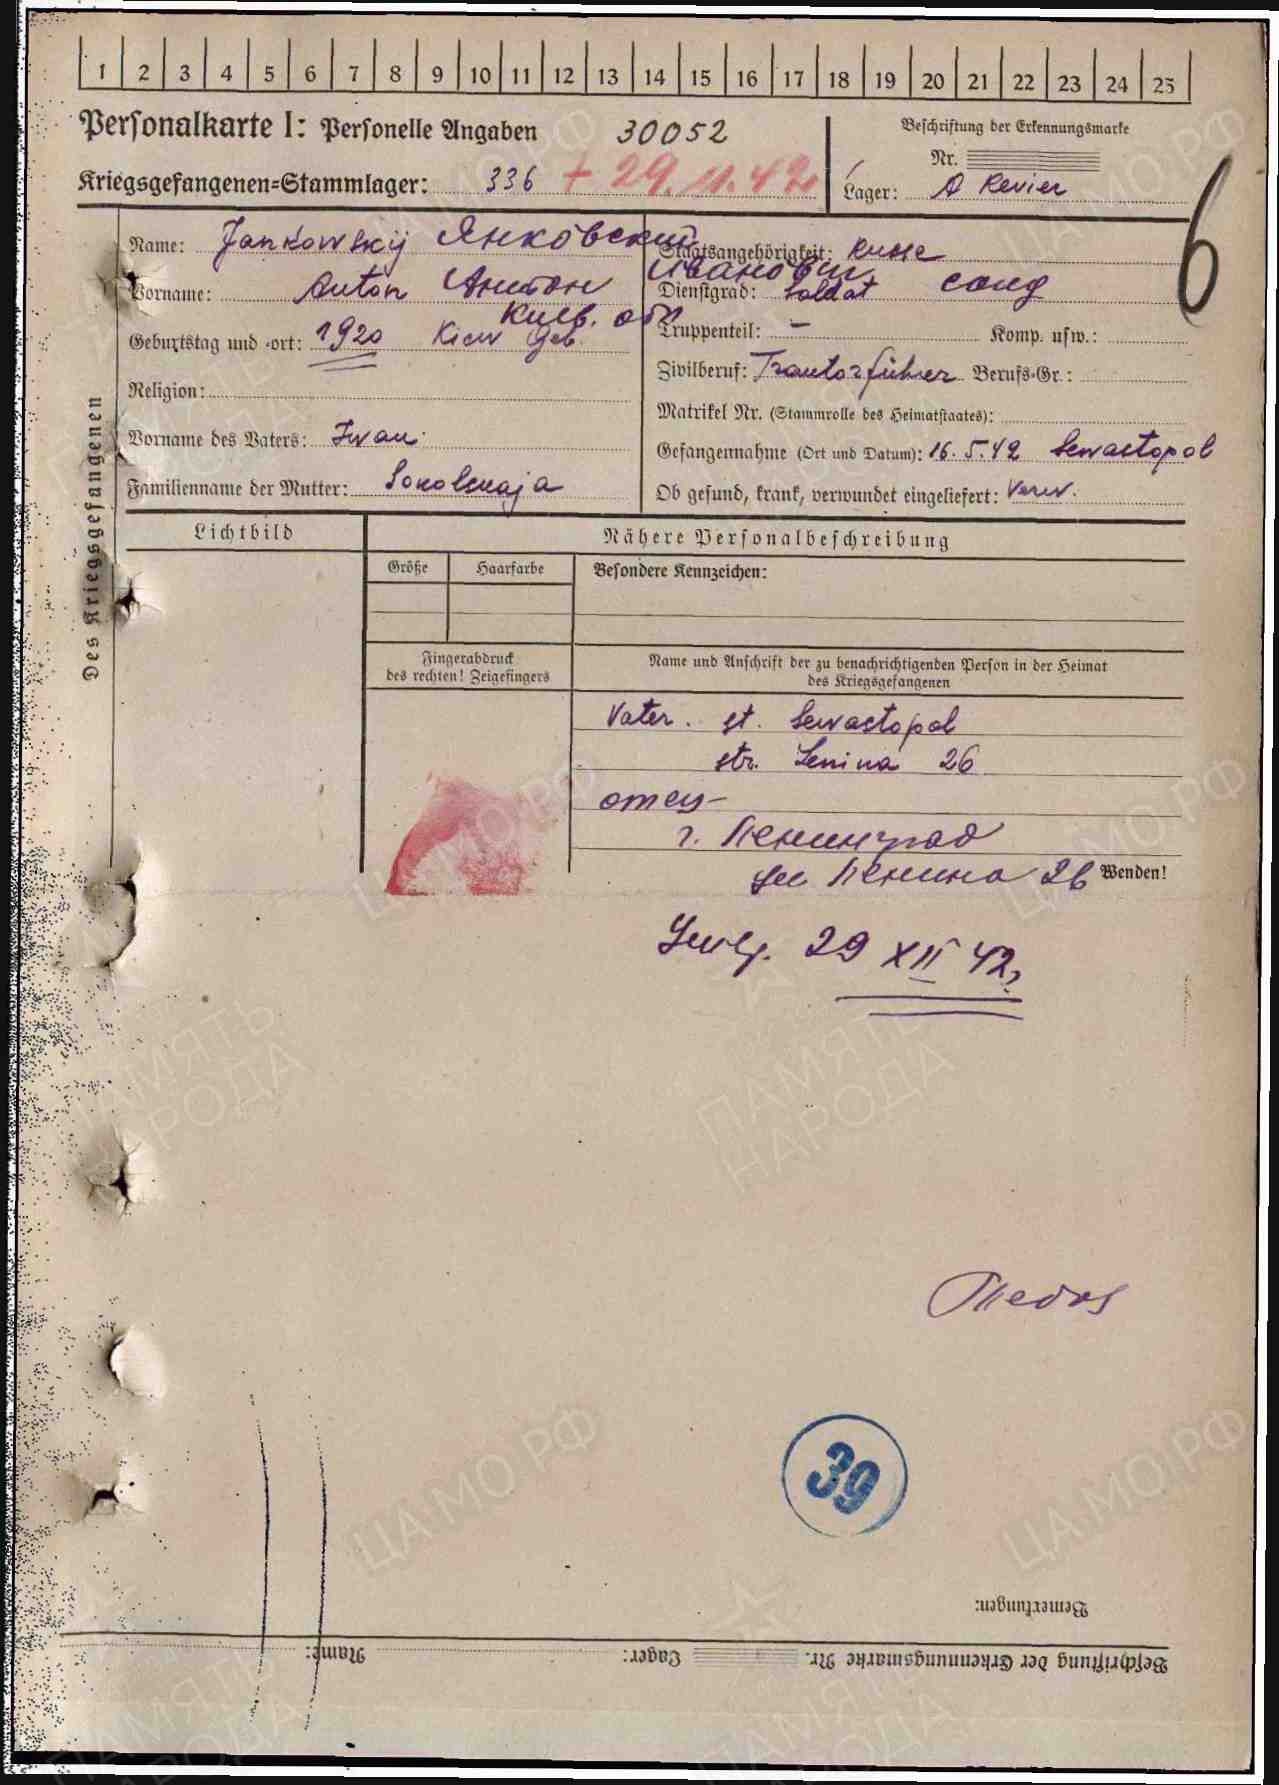 1 2 3 4 5 6 7 8 9 10 11 12 13 14 15 16 17 18 19 20 21 22 23 24 25
Personalkarte I: Personelle Angaben 30052
Beschriftung der Erkennungsmarke
Nr.
Kriegsgefangenen-Stammlager: 336 + 29.11.42
Lager: A Revier
6
Des Kriegsgefangenen
Name: Jankowskij Янковский
Vorname: Anton Антон Иванович
Киев. обл
Geburtstag und -ort: 1920 Kiew Geb.
Religion:
Vorname des Vaters: Iwan
Familienname der Mutter: Sokolskaja
Staatsangehörigkeit: Russe
Dienstgrad: Soldat солд
Truppenteil: – Komp. usw.:
Zivilberuf: Trantorführer Berufs-Gr.:
Matrikel Nr. (Stammrolle des Heimatstaates):
Gefangennahme (Ort und Datum): 16.5.42 Sewastopol
Ob gesund, krank, verwundet eingeliefert: Verw.
Lichtbild
Nähere Personalbeschreibung
Größe Haarfarbe Besondere Kennzeichen:
Fingerabdruck
des rechten! Zeigefingers
Name und Anschrift der zu benachrichtigenden Person in der Heimat
des Kriegsgefangenen
Vater. st. Sewastopol
str. Lenina 26
отец-
г. Ленинград
ул Ленина 26
Wenden!
29 XII 42
39
Bemerkungen:
Beschriftung der Erkennungsmarke Nr. Lager: Name:
ЦАМО.РФ
ПАМЯТЬ
НАРОДА